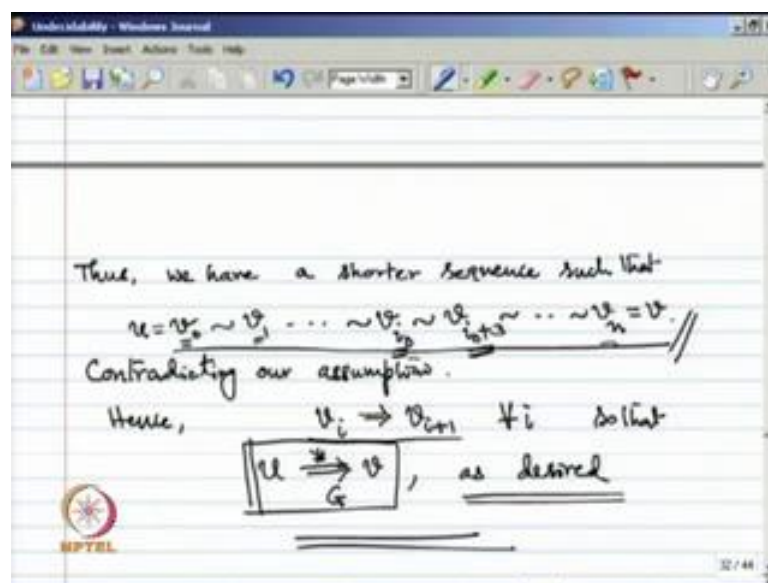 Undecidability - Windows Journal
File Edit View Insert Actions Tools Help
Page Width
Thus, we have a shorter sequence such that
u = v₀ ~ v₁ ... ~ v_{i₀} ~ v_{i₀+3} ~ ... ~ v_n = v.
Contradicting our assumption.
Hence, v_i ⇒ v_{i+1} ∀i so that
u ⇒*_G v, as desired
NPTEL
32 / 44